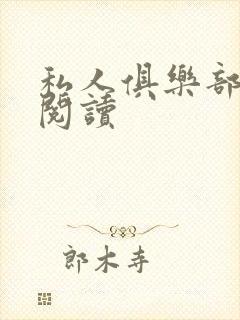 私人俱樂部
閱讀
郎木寺